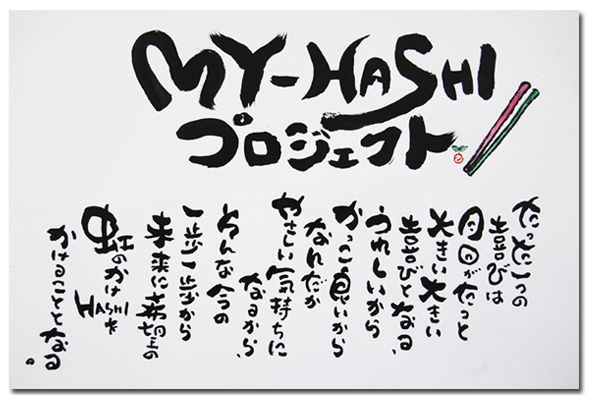 MY-HASHI
プロジェクト
たった一つの
喜びは
月日がたつと
大きい大きい
喜びとなる、
うれしいから
かっこ良いから
なんだか
やさしい気持ちに
なるから、
そんな今の
一歩一歩から
未来に希望の
虹のかけHASHIを
かけることとなる。